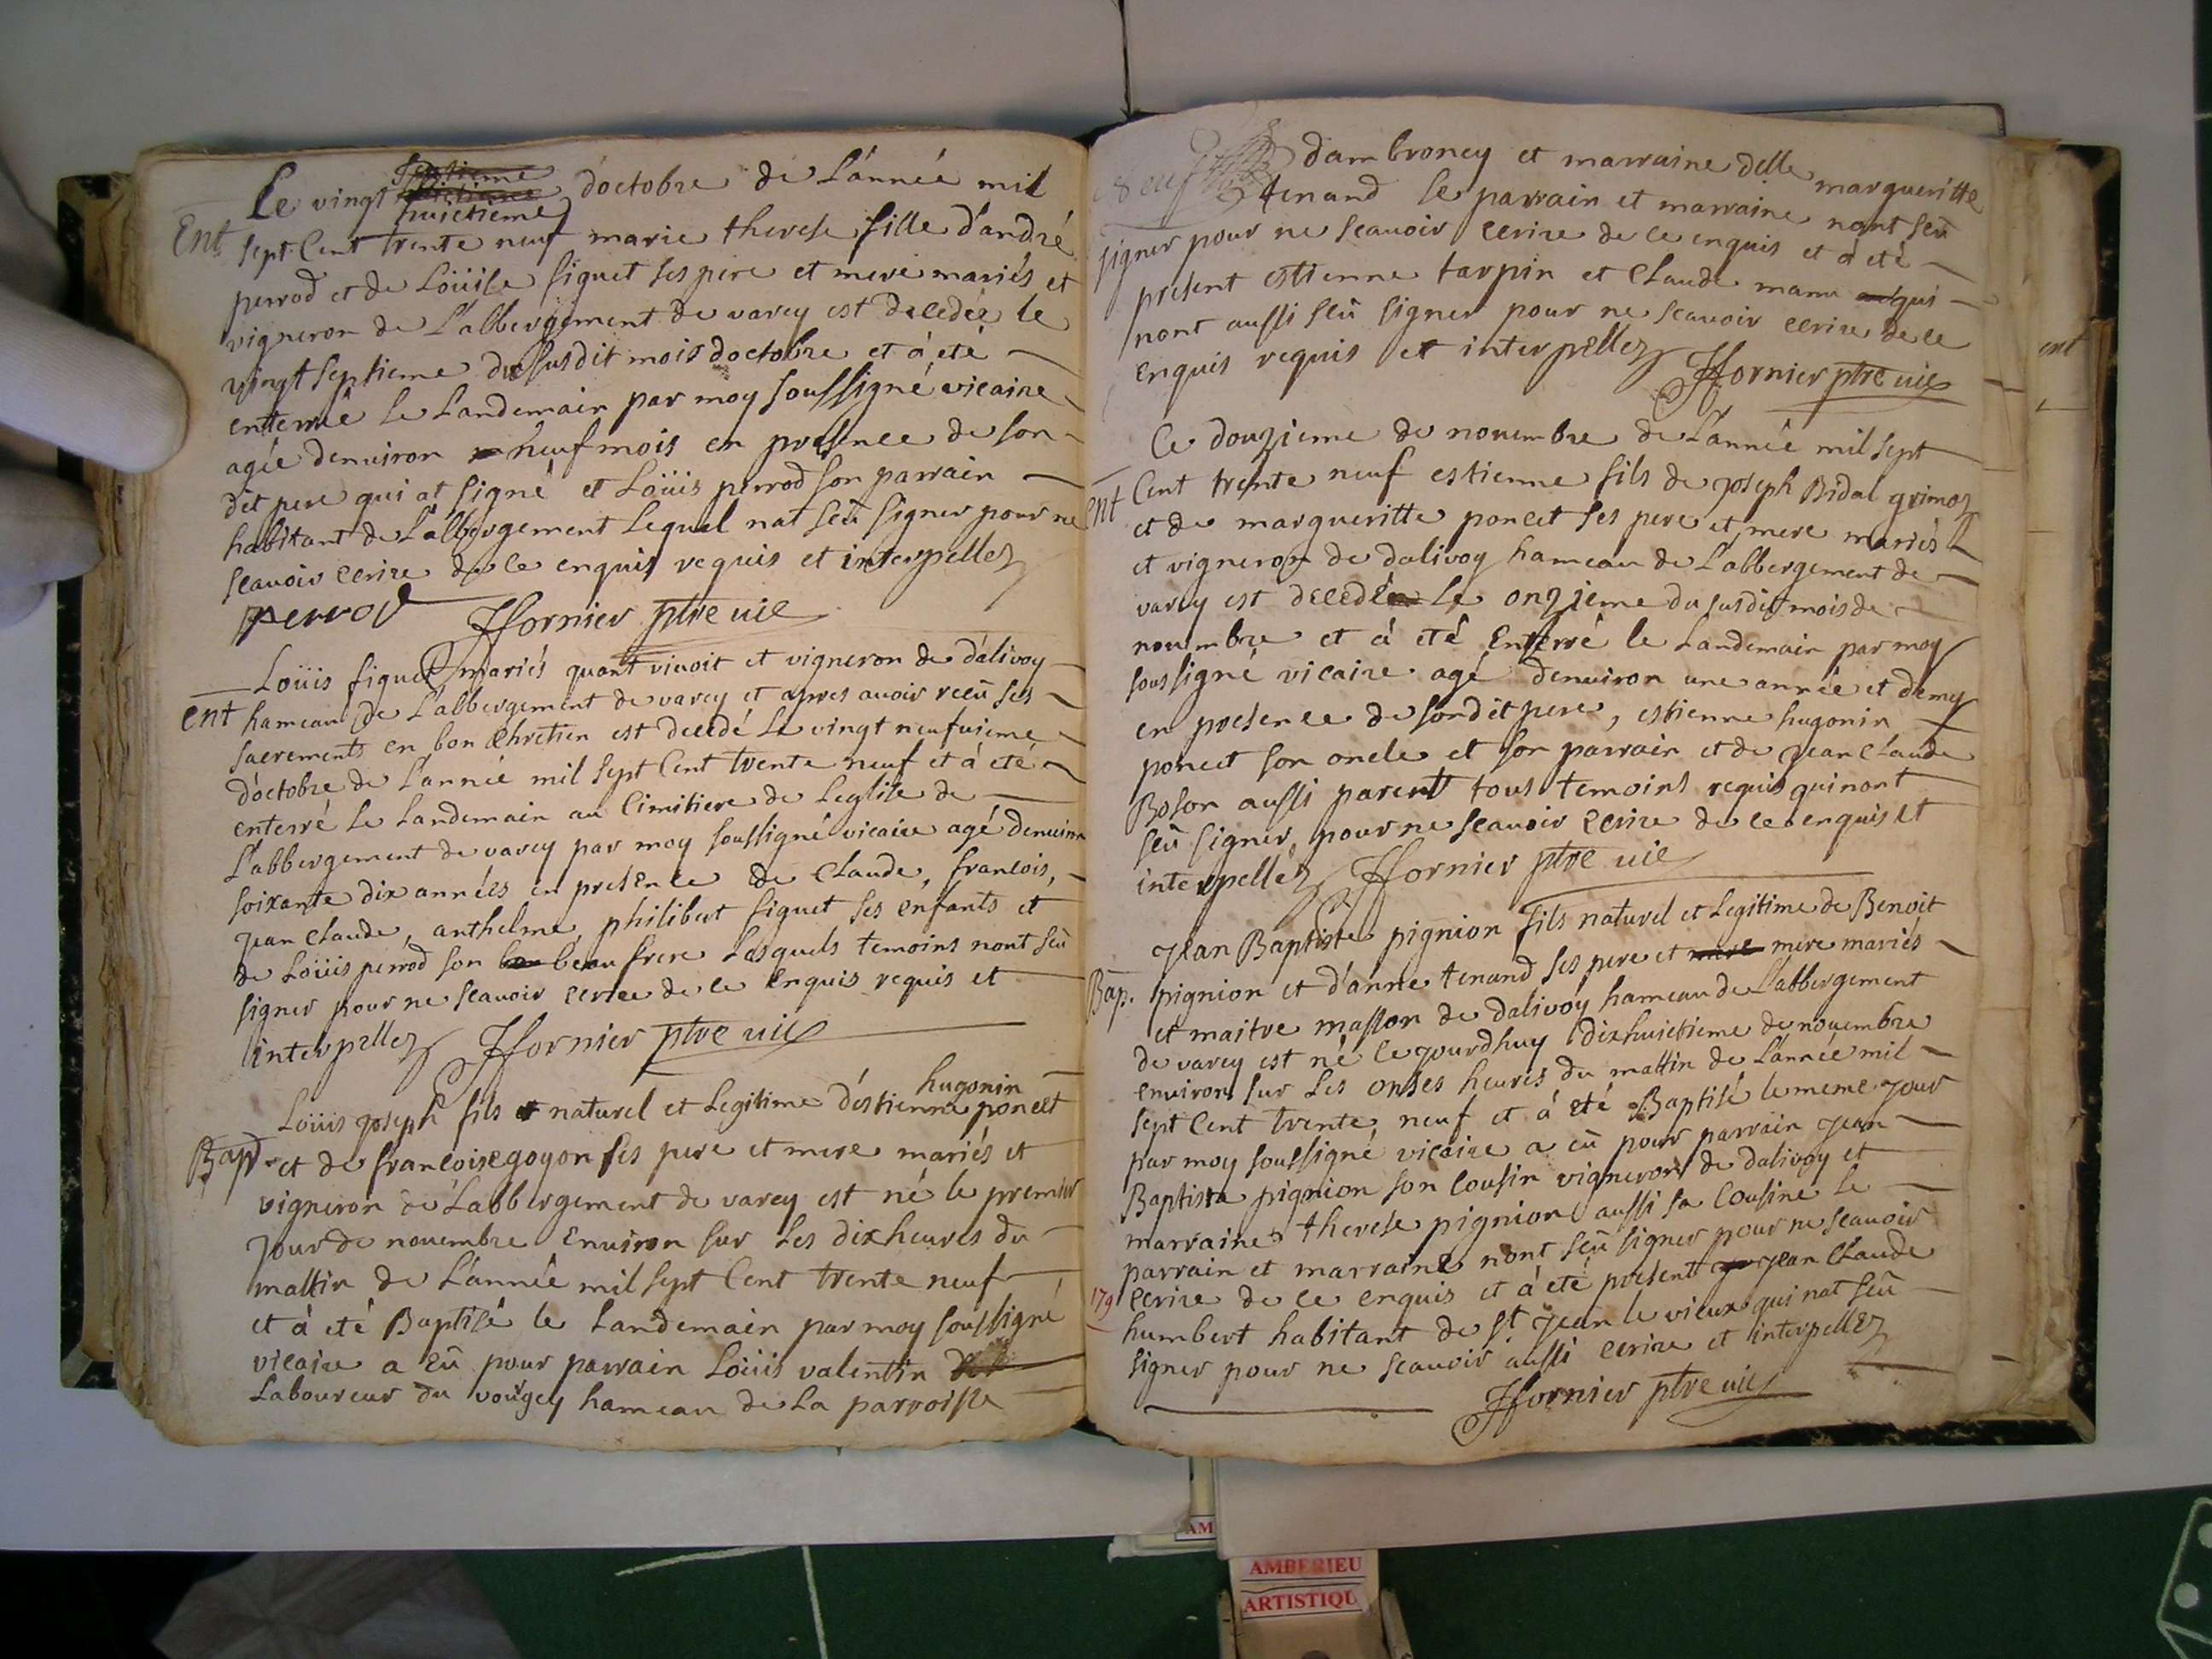 Le vingt huictieme d'octobre de L'année mil
Ent. sept Cent trente neuf marie therese fille d'andré
perrod et de Loüise fiquet ses pere et mere mariés et
vigneron de L'albergement de varey est decedée le
vingt septieme du susdit mois d'octobre et á eté
enterrée le Landemain par moy soussigné vicaire
agée denviron neuf mois en presence de son
dit pere qui at signé et Loüis perrod son parrain
habitant de L'albergement Lequel nat seû signer pour ne
scavoir ecrire de ce enquis requis et interpellez
perrod JJornier ptre vic
Loüis fiquet mariés quant vivoit et vigneron de dalivoy
ent hameau de L'abbergement de varey et apres avoir reçû ses
sacrements en bon Chretien est decedé Le vingt neufuieme
d'octobre de L'année mil sept Cent trente neuf et á eté
enterré Le Landemain au Cimitiere de Leglise de
L'abbergement de varey par moy soussigné vicaire agé denviron
soixante dix années en presence de Claude, francois,
jean Claude, anthelme, philibert fiquet ses enfants et
de Loüis perrod son beau frere Lesquels temoins nont seû
signer pour ne scavoir ecrire de ce enquis requis et
interpellez JJornier ptre vic
hugonin
Loüis joseph fils naturel et Legitime d'éstienne poncet
Bap. et de francoise goyon ses pere et mere mariés et
vigneron de L'abbergement de varey est né le premier
jour de novembre environ sur Les dix heures du
mattin de L'année mil sept Cent trente neuf
et á eté Baptisé le Landemain par moy soussigné
vicaire a eû pour parrain Loüis valentin
Laboureur du vorgey hameau de La parroisse
dambroney et marraine delle margueritte
tenand le parrain et marraine nont seû
signer pour ne scavoir ecrire de ce enquis et á eté
present estienne tarpin et Claude qui
nont aussi seû signer pour ne scavoir ecrire de ce
enquis requis et interpellez JJornier ptre vic
Le douzieme de novembre de L'année mil sept
ent Cent trente neuf estienne fils de joseph Bidal grimoz
et de margueritte poncet ses pere et mere mariés
et vigneron de dalivoy hameau de L'abbergement de
varey est decedé Le onzieme du susdit mois de
novembre et á eté Enterré le Landemain par moy
soussigné vicaire agé denviron une année et demy
en presence de sondit pere, estienne hugonin
poncet son oncle et son parrain et de jean Claude
Boson aussi parent tous temoins requis qui nont
seû signer, pour ne scavoir ecrire de ce enquis et
interpellez JJornier ptre vic
jean Baptiste pignion fils naturel et Legitime de Benoit
Bap. pignion et d'anne tenand ses pere et mere mariés
et maitre masson de dalivoy hameau de L'abbergement
de varey est né ce jourdhuy dixhuictieme de novembre
environ sur Les onses heures du mattin de L'année mil
sept Cent trente neuf et á eté Baptisé le meme jour
par moy soussigné vicaire a eû pour parrain jean
Baptista pignion son Cousin vigneron de dalivoy et
marraine therese pignion aussi sa Cousine le
parrain et marraine nont seû signer pour ne scavoir
179 ecrire de ce enquis et á eté present jean Claude
humbert habitant de St jean le vieux qui nat seû
signer pour ne scavoir aussi ecrire et interpellez
JJornier ptre vic
ent
AMBERIEU
ARTISTIQU